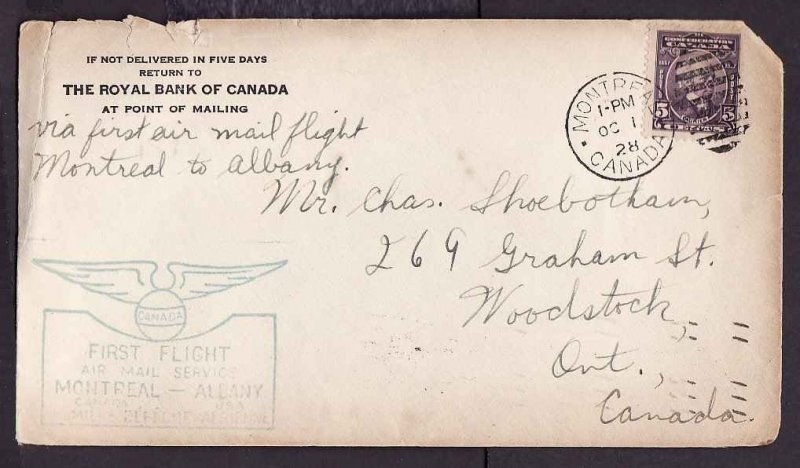 IF NOT DELIVERED IN FIVE DAYS
RETURN TO
THE ROYAL BANK OF CANADA
AT POINT OF MAILING
via first air mail flight
Montreal to Albany.
Mr. Chas. Shoebotham,
269 Graham St.
Woodstock,
Ont.,
Canada.
MONTREAL
1-PM
OC 1
28
CANADA
CONFEDERATION
5 5
CANADA
FIRST FLIGHT
AIR MAIL SERVICE
MONTREAL — ALBANY
CANADA USA